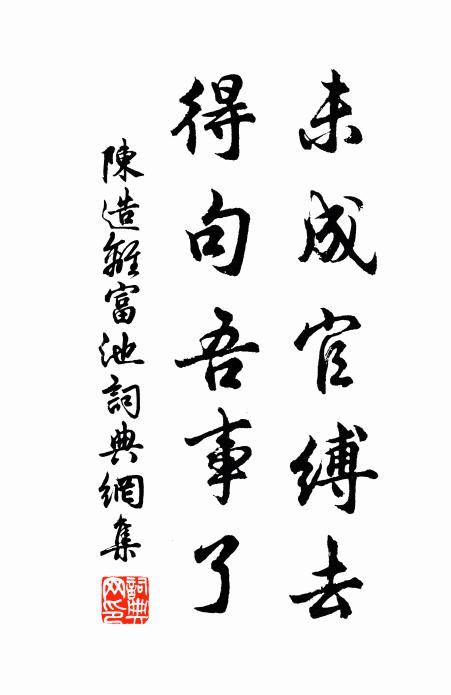 未成官縛去
得句吾事了
陳造離富池詞典網集
詞典網印